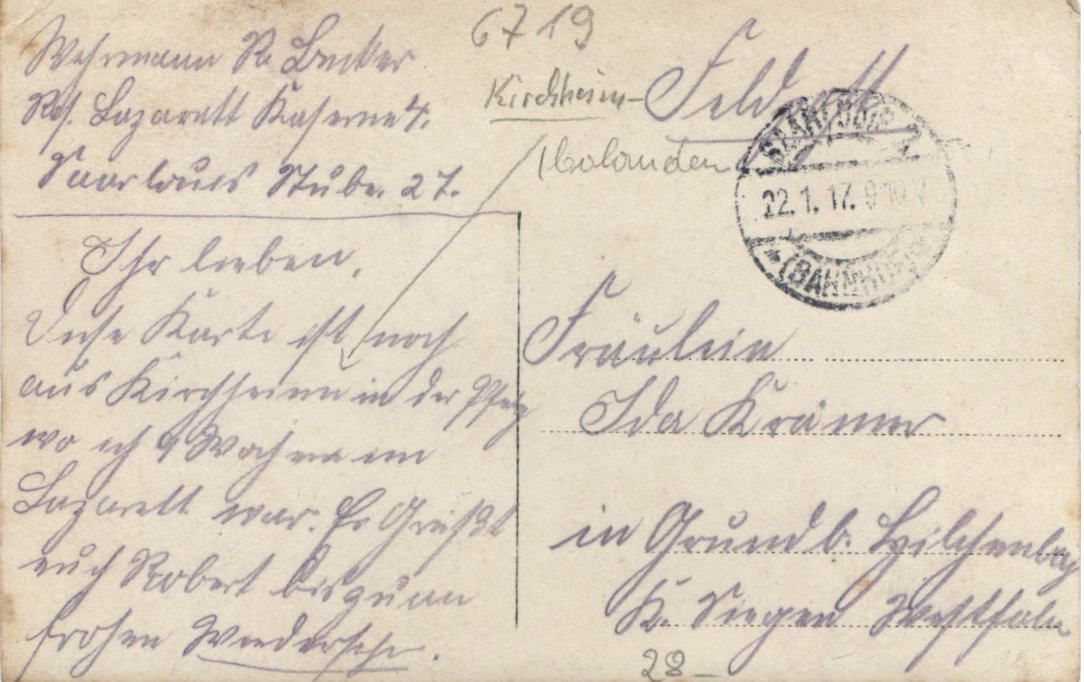 6719
Wehrmann R. Becker
Res. Lazarett Kaserne 4.
Saarlouis Stube. 27.
Kirchheim-
(bolanden
Feldpost
SAARLOUIS
22.1.17. 9-10V
* (BAHNHOF) *
Ihr lieben.
Diese Karte ist noch
aus Kirchheim in der Pfalz
wo ich 9 Wochen im
Lazarett war. Es Grüßt
euch Robert bis zum
frohen Wiedersehn.
Fräulein
Ida Krämer
in Grund b. Hilchenbach
K. Siegen Westfalen
28_